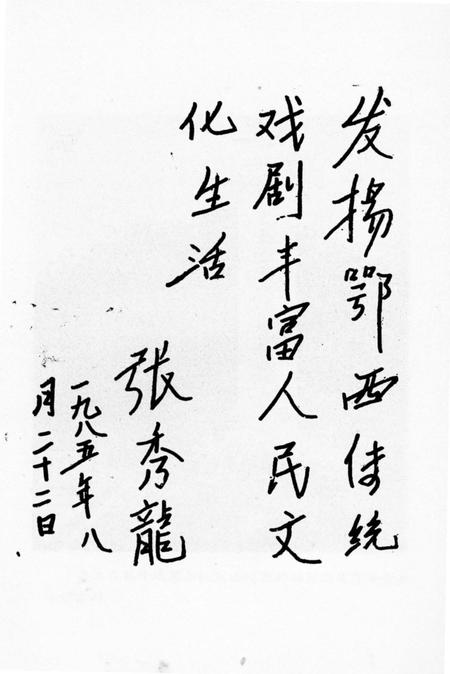 发揚鄂西传统
戏剧丰富人民文
化生活
张秀龍
一九八五年八
月二十二日